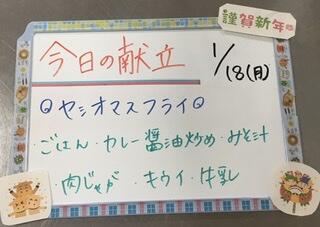 謹賀新年
今日の献立
1/18(月)
◎ヤシオマスフライ◎
・ごはん・カレー醤油炒め・みそ汁
・肉じゃが・キウイ・牛乳